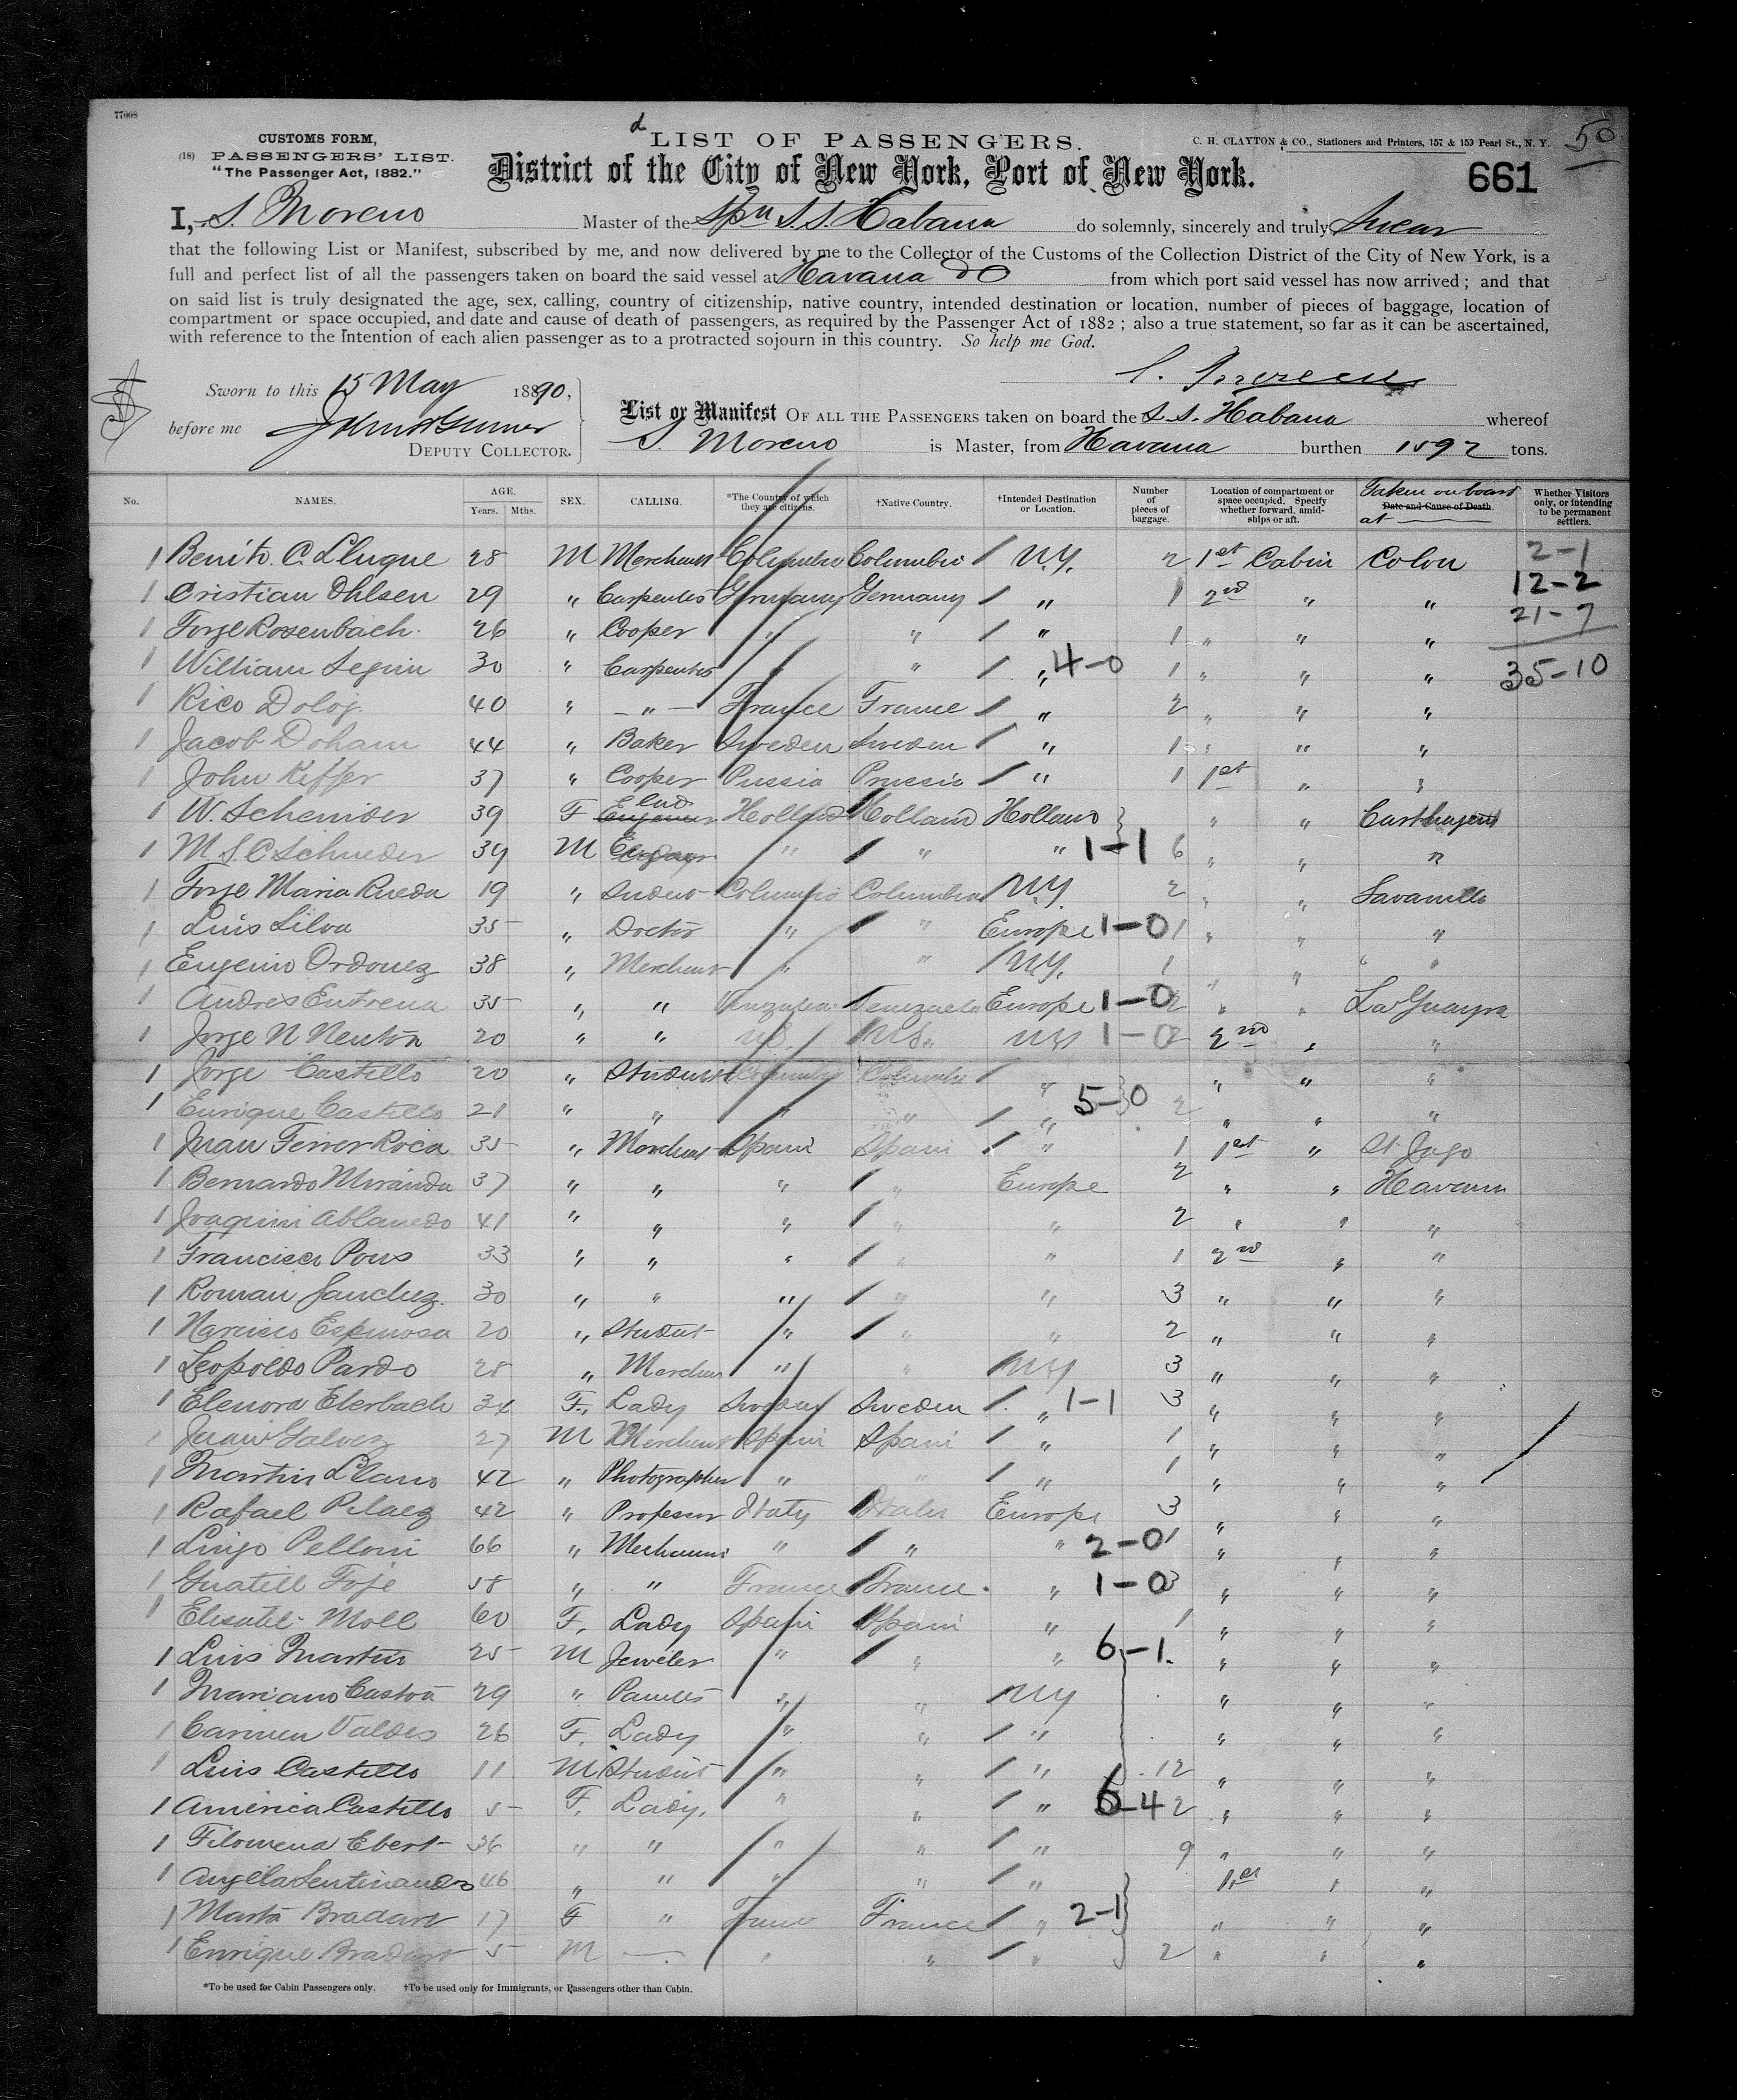 77008
CUSTOMS FORM,
(18) PASSENGERS' LIST.
"The Passenger Act, 1882."
LIST OF PASSENGERS.
C. H. CLAYTON & CO., Stationers and Printers, 157 & 159 Pearl St., N. Y.
50
District of the City of New York, Port of New York.
661
I, S. Moreno Master of the Spn S.S. Habana do solemnly, sincerely and truly Swear
that the following List or Manifest, subscribed by me, and now delivered by me to the Collector of the Customs of the Collection District of the City of New York, is a
full and perfect list of all the passengers taken on board the said vessel at Havana from which port said vessel has now arrived; and that
on said list is truly designated the age, sex, calling, country of citizenship, native country, intended destination or location, number of pieces of baggage, location of
compartment or space occupied, and date and cause of death of passengers, as required by the Passenger Act of 1882; also a true statement, so far as it can be ascertained,
with reference to the Intention of each alien passenger as to a protracted sojourn in this country. So help me God.
S. Moreno
Sworn to this 15 May 1890,
before me
DEPUTY COLLECTOR.
List or Manifest OF ALL THE PASSENGERS taken on board the S.S. Habana whereof
S. Moreno is Master, from Havana burthen 1592 tons.
No. NAMES. AGE. Years. Mths. SEX. CALLING. *The Country of which they are citizens. †Native Country. †Intended Destination or Location. Number of pieces of baggage. Location of compartment or space occupied. Specify whether forward, amidships or aft. Taken on board at Date and Cause of Death. Whether Visitors only, or intending to be permanent settlers.
1 Benito C. Lluque 28 M Merchant Columbia Columbia / N.Y. 2 1st Cabin Colon 2-1
1 Cristian Ohlsen 29 " Carpenter Germany Germany / " 1 2nd " " 12-2
1 Jorge Rosenbach 26 " Cooper " " / " 1 " " " 21-7
1 William Seguin 30 " Carpenter " " / " 4-0 1 " " " 35-10
1 Rico Doloj 40 " " France France / " 2 " " "
1 Jacob Doham 44 " Baker Sweden Sweden / " 1 " " "
1 John Kiffer 37 " Cooper Prussia Prussia / " 1 1st " "
1 W. Schenider 39 F Holland Holland Holland " " Carthagena
1 M.S.C Schnieder 39 M " / " " 1-1 6 " " "
1 Jorge Maria Rueda 19 " Student Columbia Columbia N.Y. 2 " " Savanilla
1 Luis Silva 35 " Doctor " / " Europe 1-0 1 " " "
1 Eugenio Ordonez 38 " Merchant " " / N.Y. 1 " " "
1 Andres Entrena 35 " " Venezuela Venezuela Europe 1-0 2 " " La Guayra
1 Jorge N Newton 20 " " U.S. U.S. 1-0 2 2nd " "
1 Jorge Castillo 20 " Student Columbia Columbia / " " " "
1 Enrique Castillo 21 " " " " / " 5-0 2 " " "
1 Juan Ferrer Roca 35 " Merchant Spain Spain / " 1 1st " St Jago
1 Bernardo Miranda 37 " " " / " Europe 2 " " Havana
1 Joaquin Ablanedo 41 " " " / " " 2 " " "
1 Francisco Pons 33 " " " / " " 1 2nd " "
1 Roman Sanchez 30 " " " / " " 3 " " "
1 Narciso Espinosa 20 " Student " / " " 2 " " "
1 Leopoldo Pardo 28 " Merchant " " NY 3 " " "
1 Elenora Elerbach 34 F. Lady Sweden Sweden / " 1-1 3 " " "
1 Juan Galvez 27 M Merchant Spain Spain / " 1 " " "
1 Martin Llano 42 " Photographer " " / " 1 " " "
1 Rafael Pelaez 42 " Professor Italy Italy Europe 3 " " "
1 Luigo Pelloni 66 " " / " " 2-0 1 " " "
1 Guatill Fofe 58 " " France France " 1-0 3 " " "
1 Moll 60 F. Lady Spain Spain " 1 " " "
1 Luis Martin 25 M Jeweler " / " " 6-1 " " "
1 Mariano Castro 29 " " " NY " " "
1 Carmen Valdes 26 F. Lady " " / " " " "
1 Luis Castillo 11 M Student " " / " 12 " " "
1 America Castillo 5 F. Lady. " " / " 6-4 2 " " "
1 Filomena Ebert 36 " " " " / " 9 " " "
1 Angela 46 " " " " / " 1st " "
1 Marta Bradart 17 F " France France / " 2-1 " " "
1 Enrique Bradart 5 M — " " / " 2 " " "
*To be used for Cabin Passengers only. †To be used only for Immigrants, or Passengers other than Cabin.